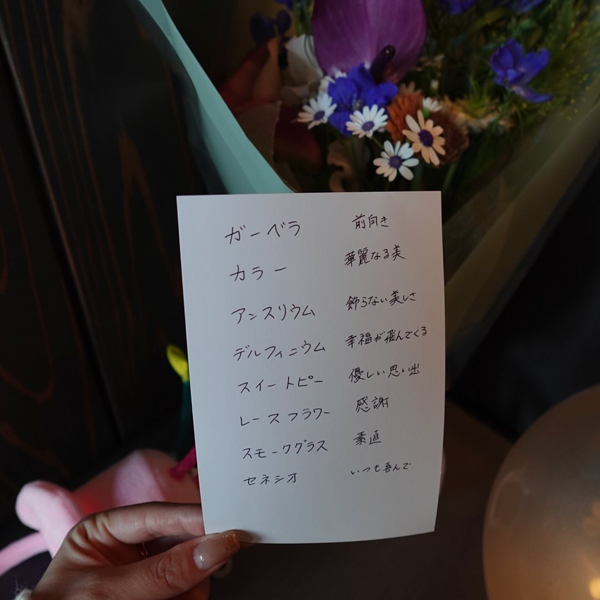 ガーベラ 前向き
カラー 華麗なる美
アンスリウム 飾らない美しさ
デルフィニウム 幸福が飛んでくる
スイートピー 優しい思い出
レースフラワー 感謝
スモークグラス 素直
セネシオ いつも喜んで